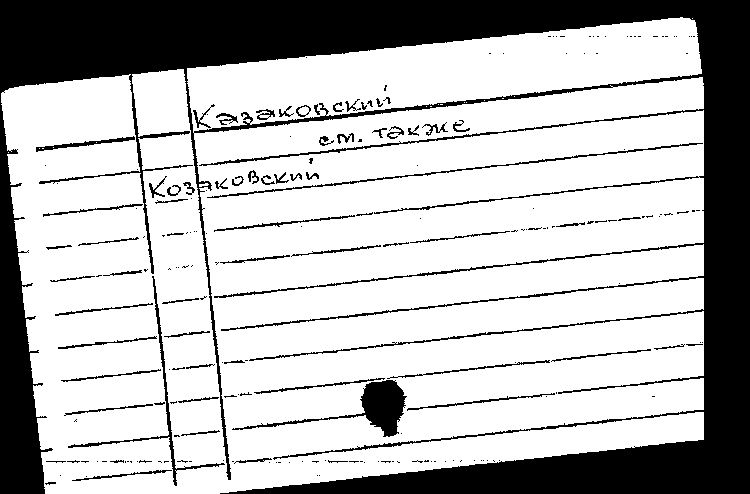 Казаковский
см. также
Козаковский